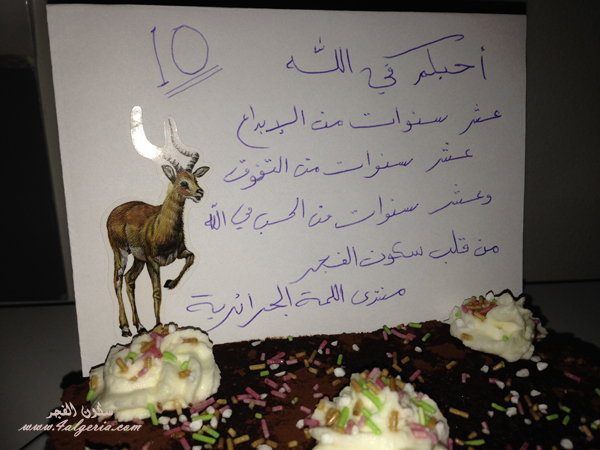 10
أحبكم في الله
عشر سنوات من الإبداع
عشر سنوات من التفوق
وعشر سنوات من الحب في الله
من قلب سكون الفجر
منتدى اللمة الجزائرية
سكون الفجر
www.4algeria.com